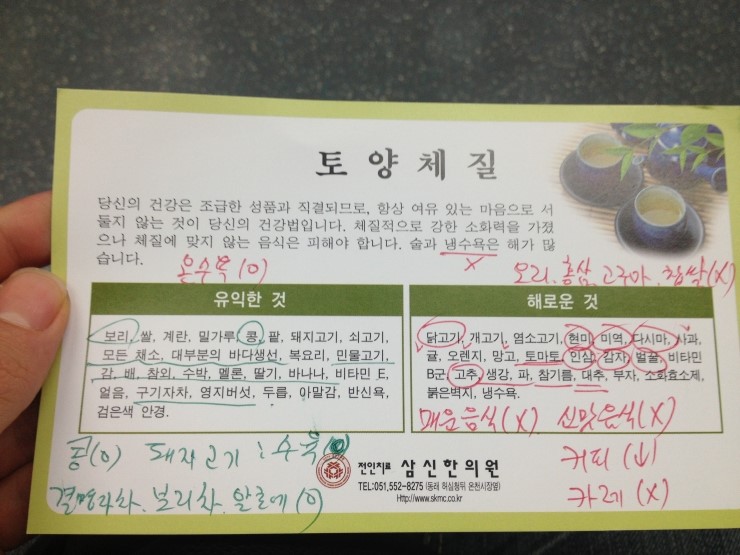 토양체질
당신의 건강은 조급한 성품과 직결되므로, 항상 여유 있는 마음으로 서
둘지 않는 것이 당신의 건강법입니다. 체질적으로 강한 소화력을 가졌
으나 체질에 맞지 않는 음식은 피해야 합니다. 술과 냉수욕은 해가 많
습니다.
X
온수욕 (O)
오리. 홍삼. 고구마. 찹쌀(X)
유익한 것
보리, 쌀, 계란, 밀가루, 콩, 팥, 돼지고기, 쇠고기,
모든 채소, 대부분의 바다생선, 복요리, 민물고기,
감, 배, 참외, 수박, 멜론, 딸기, 바나나, 비타민 E,
얼음, 구기자차, 영지버섯, 두릅, 아말감, 반신욕,
검은색 안경.
해로운 것
닭고기, 개고기, 염소고기, 현미, 미역, 다시마, 사과,
귤, 오렌지, 망고, 토마토, 인삼, 감자, 벌꿀, 비타민
B군, 고추, 생강, 파, 참기름, 대추, 부자, 소화효소제,
붉은벽지, 냉수욕.
매운음식(X) 신맛음식(X)
커피 (↓)
카레 (X)
콩(O) 돼지고기 : 수육(O)
결명자차. 보리차. 알로에 (O)
전인치료 삼신한의원
TEL:051,552-8275 (동래 허심청뒤 온천시장옆)
Http://www.skmc.co.kr